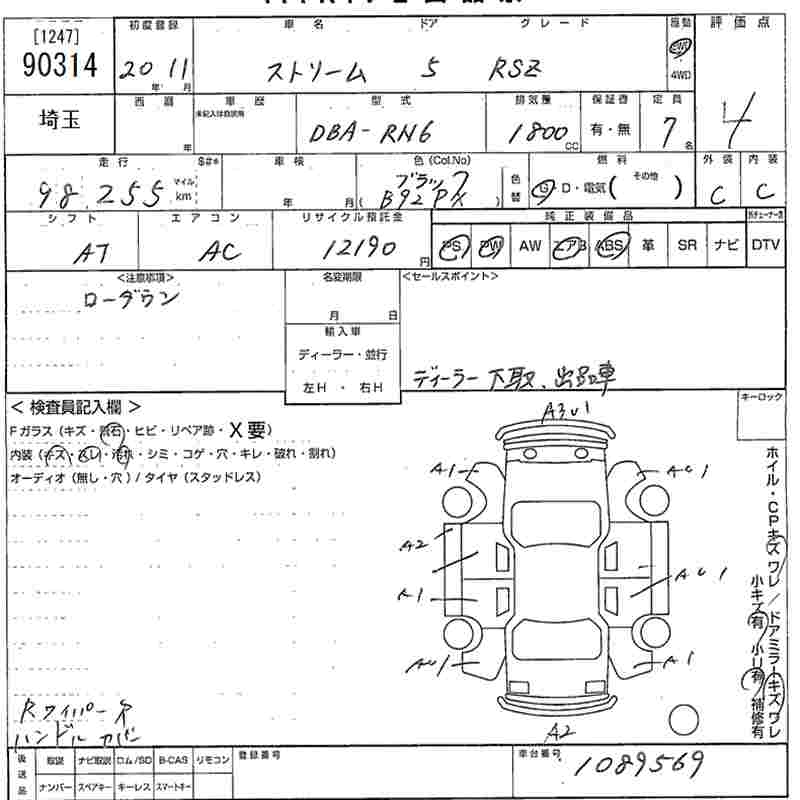 [1247]
90314
初度登録
車名
ドア
グレード
駆動
評価点
20 年 11 月
ストリーム
5
RSZ
2WD
4WD
4
埼玉
西暦
年
車歴
未記入は自家用
型式
DBA-RN6
排気量
1800 CC
保証書
有・無
定員
7 名
走行
98,255
マイル
km
$#*
車検
年 月
色 (Col.No)
ブラック
( B92PX )
色替
燃料
G・D・電気 ( その他 )
外装
C
内装
C
シフト
AT
エアコン
AC
リサイクル預託金
12190 円
純正装備品
PS PW AW エアB ABS 革 SR ナビ DTV
<注意事項>
ローダウン
名変期限
月 日
輸入車
ディーラー・並行
左H ・ 右H
<セールスポイント>
ディーラー下取、出品車
< 検査員記入欄 >
Fガラス (キズ・飛石・ヒビ・リペア跡・X要)
内装 (キズ・スレ・汚れ・シミ・コゲ・穴・キレ・破れ・割れ)
オーディオ (無し・穴) / タイヤ (スタッドレス)
キーロック
A3U1
A1
AU1
A2
AU1
A1
AU1
A1
A2
ホイル・CPキズ ワレ / ドアミラーキズ ワレ
小キズ有 小リ有 補修有
Rワイパー不
ハンドルカバー
後送品
取説 ナビ取説 ロム/SD B-CAS リモコン
ナンバー スペアキー キーレス スマートキー
登録番号
車台番号
1089569